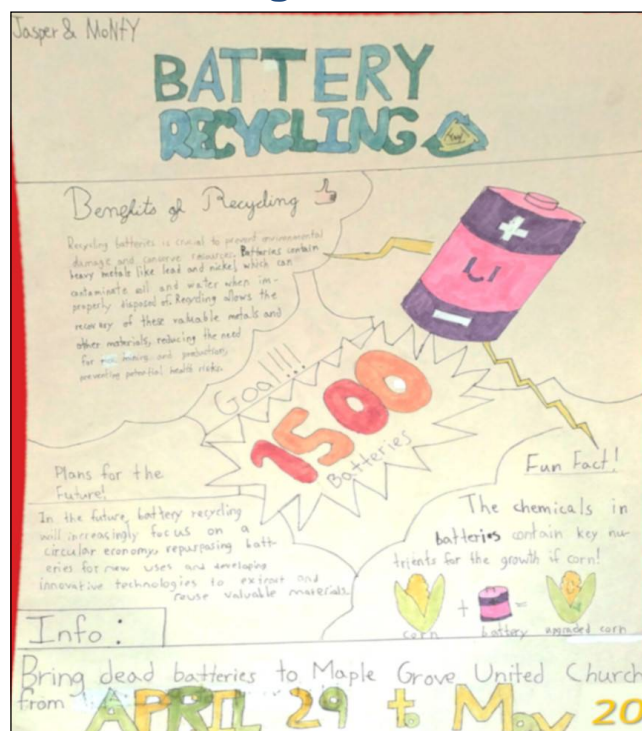 Jasper & Monty
BATTERY
RECYCLING
Benefits of Recycling
Recycling batteries is crucial to prevent environmental
damage and conserve resources. Batteries contain
heavy metals like lead and nickel, which can
contaminate soil and water when im-
properly disposed of. Recycling allows the
recovery of these valuable metals and
other materials, reducing the need
for mining and production,
preventing potential health risks.
LI
Goal!!!!
1500
Batteries
Plans for the
Future!
In the future, battery recycling
will increasingly focus on a
circular economy, repurposing batt-
eries for new uses and developing
innovative technologies to extract and
reuse valuable materials.
Fun Fact!
The chemicals in
batteries contain key nu-
trients for the growth if corn!
+ =
corn battery upgraded corn
Info:
Bring dead batteries to Maple Grove United Church
from APRIL 29 to May 20